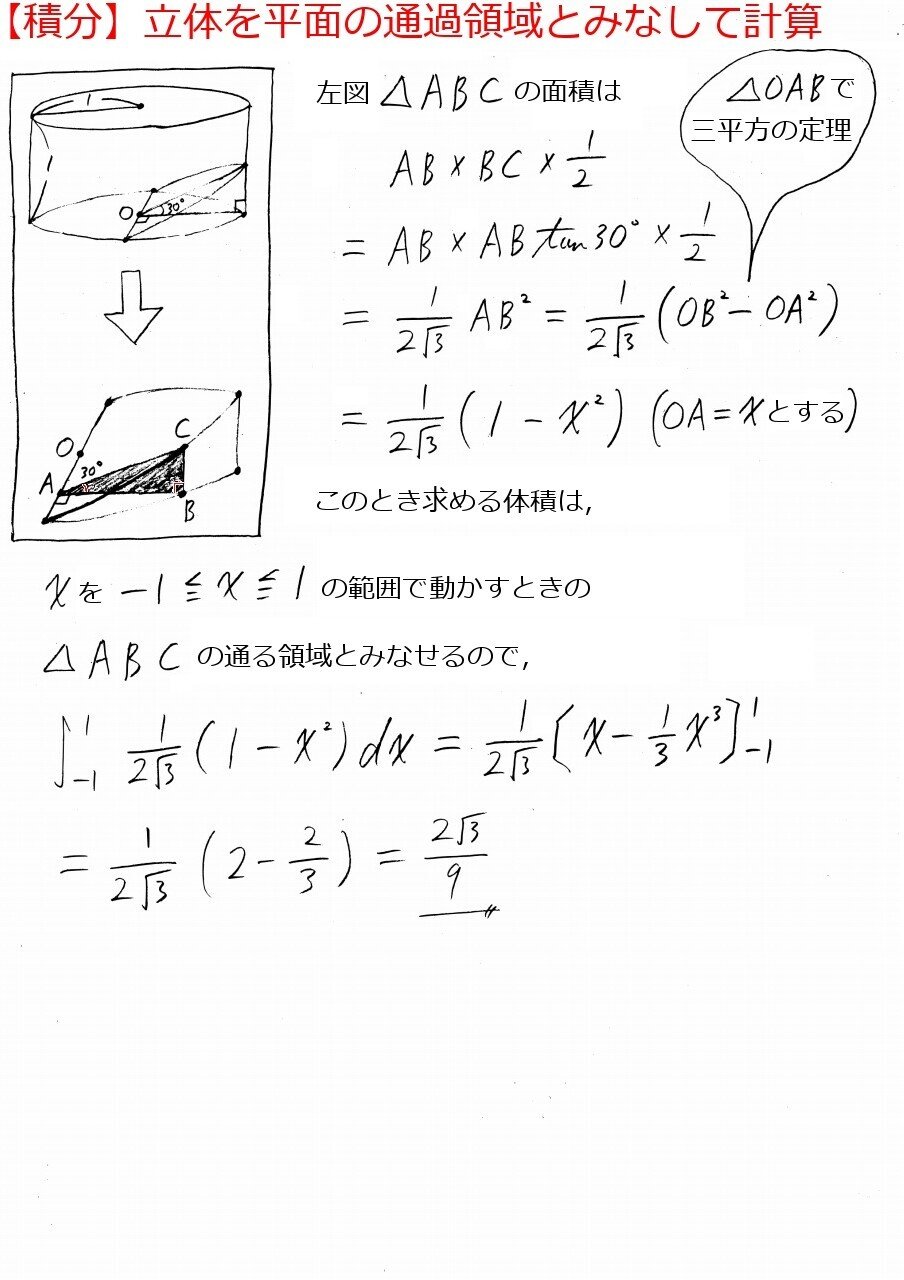 【積分】立体を平面の通過領域とみなして計算
1
1
O 30°
O
A 30° C
B
左図 △ABC の面積は
△OABで
三平方の定理
AB × BC × 1/2
= AB × AB tan30° × 1/2
= 1/2√3 AB² = 1/2√3 (OB² − OA²)
= 1/2√3 (1 − x²) (OA = xとする)
このとき求める体積は,
xを −1 ≦ x ≦ 1 の範囲で動かすときの
△ABC の通る領域とみなせるので,
∫₋₁¹ 1/2√3 (1 − x²) dx = 1/2√3 [x − 1/3 x³]₋₁¹
= 1/2√3 (2 − 2/3) = 2√3/9